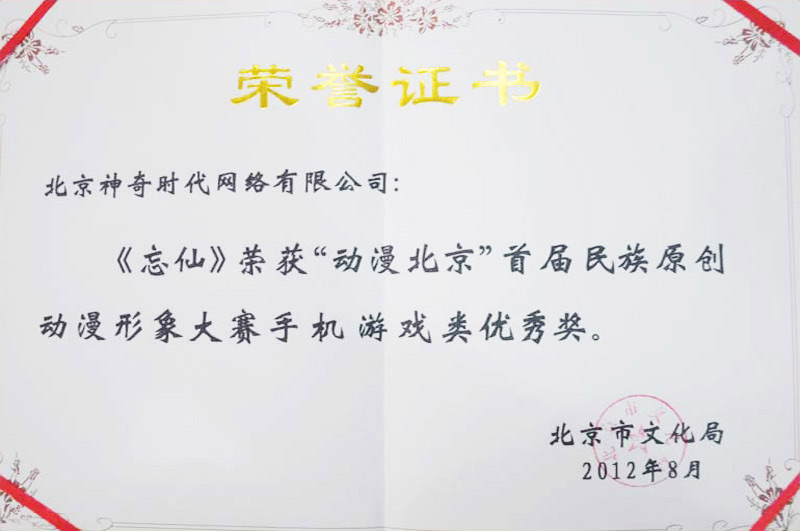 荣誉证书
北京神奇时代网络有限公司：
《忘仙》荣获“动漫北京”首届民族原创
动漫形象大赛手机游戏类优秀奖。
北京市文化局
2012年8月